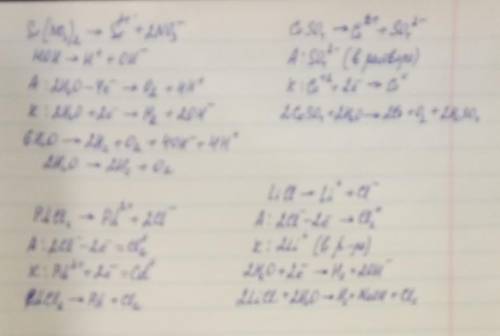 Sr(NO₃)₂ → Sr²⁺ + 2NO₃⁻
HOH → H⁺ + OH⁻
A: 2H₂O - 4e → O₂ + 4H⁺
K: 2H₂O + 2e → H₂ + 2OH⁻
6H₂O → 2H₂ + O₂ + 4OH⁻ + 4H⁺
2H₂O → 2H₂ + O₂
CoSO₄ → Co²⁺ + SO₄²⁻
A: SO₄²⁻ (в растворе)
K: Co⁺² + 2e → Co⁰
2CoSO₄ + 2H₂O → 2Co + O₂ + 2H₂SO₄
PbCl₂ → Pb²⁺ + 2Cl⁻
A: 2Cl⁻ - 2e = Cl₂⁰
K: Pb²⁺ + 2e =
PbCl₂ → Pb + Cl₂
LiCl → Li⁺ + Cl⁻
A: 2Cl⁻ - 2e → Cl₂⁰
K: 2Li⁺ (в р-ре)
2H₂O + 2e → H₂ + 2OH⁻
2LiCl + 2H₂O → H₂ + + Cl₂